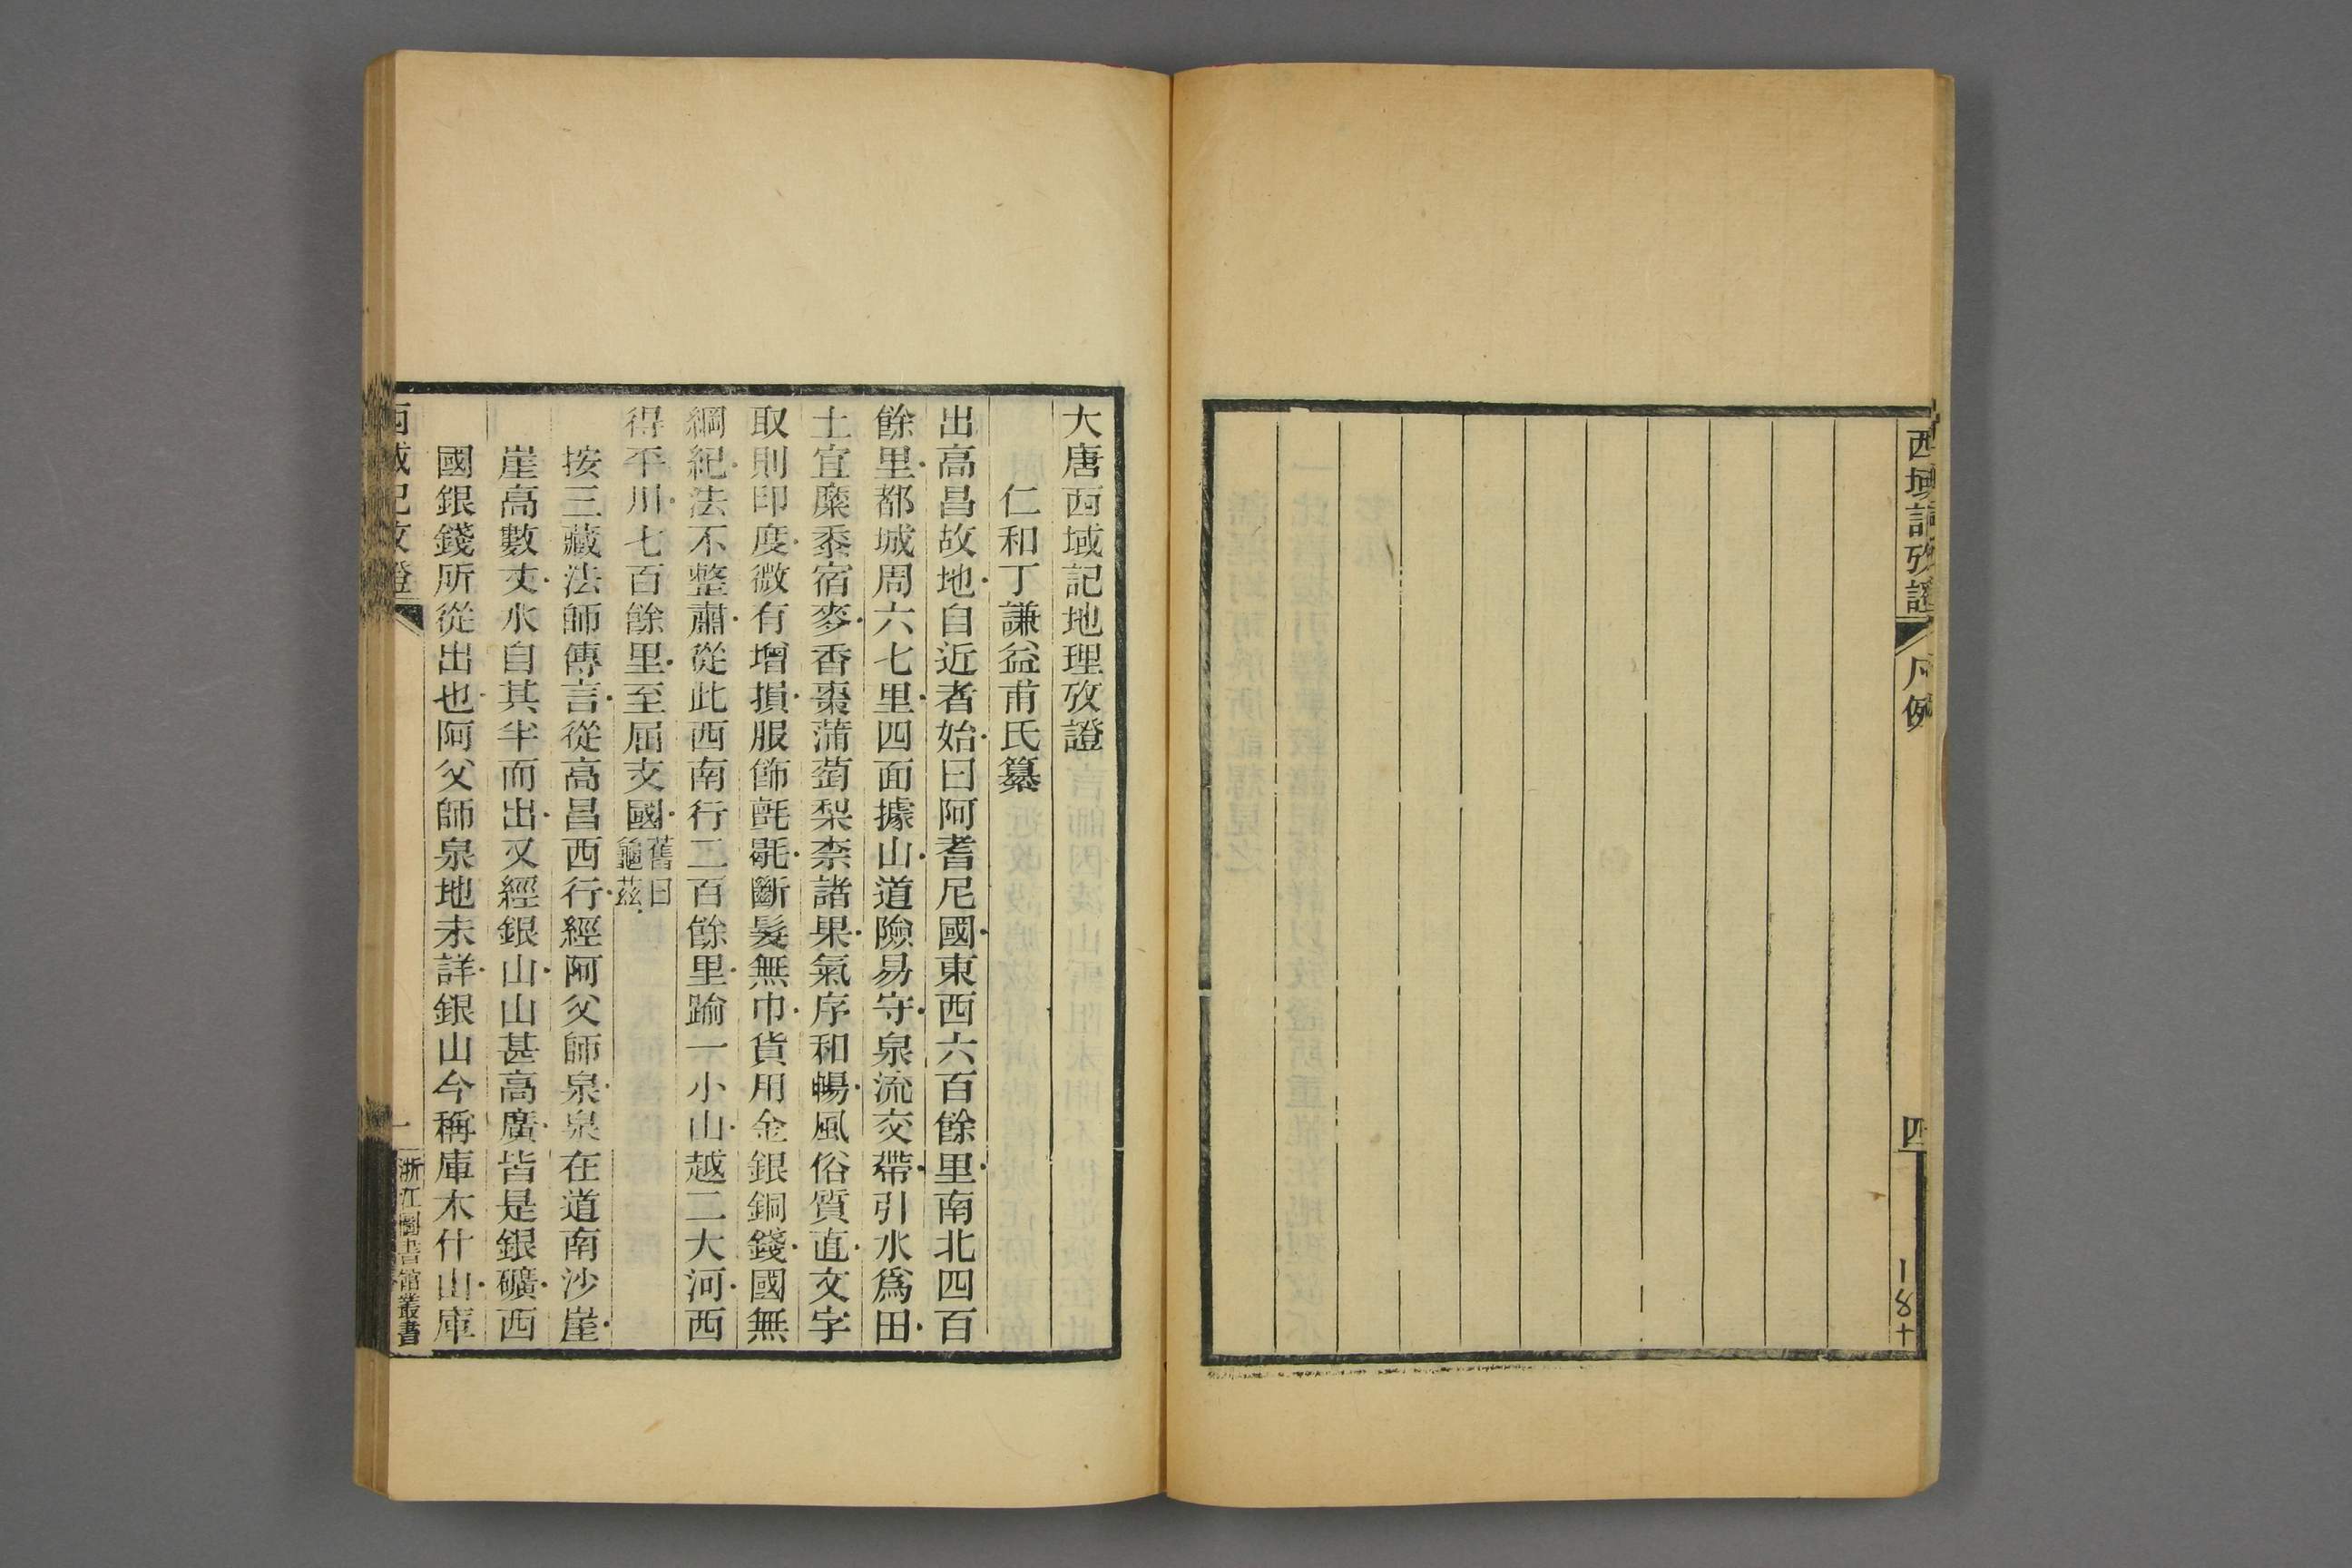 西域記攷證
凡例
四
大唐西域記地理攷證
仁和丁謙益甫氏纂
出高昌故地自近者始曰阿耆尼國東西六百餘里南北四百
餘里都城周六七里四面據山道險易守泉流交帶引水爲田
土宜糜黍宿麥香棗蒲萄梨柰諸果氣序和暢風俗質直文字
取則印度微有增損服飾氈㲲斷髮無巾貨用金銀銅錢國無
綱紀法不整肅從此西南行二百餘里踰一小山越二大河西
得平川七百餘里至屈支國舊曰龜茲
按三藏法師傳言從高昌西行經阿父師泉泉在道南沙崖
崖高數丈水自其半而出又經銀山山甚高廣皆是銀礦西
國銀錢所從出也阿父師泉地未詳銀山今稱庫木什山庫
西域記攷證
一
浙江圖書館叢書